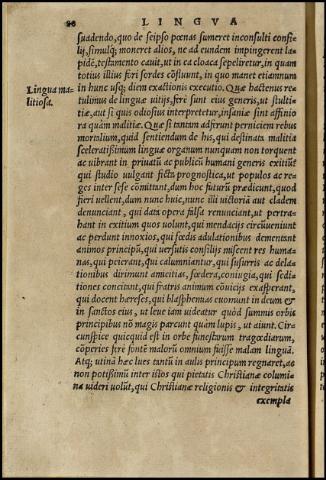 26 LINGVA
suadendo, quo de seipso pœnas sumeret inconsulti consi-
lij, simulq; moneret alios, ne ad eundem impingerent la-
pidē, testamento cauit, ut in ea cloaca sepeliretur, in quam
totius illius fori sordes cōfluunt, in quo manet etiamnum
in hunc usq; diem exactionis executio. Quæ hactenus re-
Lingua ma-
litiosa.
tulimus de linguæ uitijs, ferè sunt eius generis, ut stulti-
tiæ, aut si quis odiosius interpretetur, insaniæ sint affinio
ra quàm malitiæ. Quæ si tantam adferunt perniciem rebus
mortalium, quid sentiendum de his, qui destinata malitia
sceleratissimum linguæ organum nunquam non torquent
ac uibrant in priuatū ac publicū humani generis exitiū?
qui studio uulgant ficta prognostica, ut populos ac re-
ges inter sese cōmittant, dum hoc futurū prædicunt, quod
fieri uellent, dum nunc huic, nunc illi uictoriā aut cladem
denunciant, qui data opera falsa renunciant, ut pertra-
hant in exitium quos uolunt, qui mendacijs circūueniunt
ac perdunt innoxios, qui fœdis adulationibus dementant
animos principū, qui uersutis consilijs miscent res huma-
nas, qui peierant, qui calumniantur, qui susurris ac dela-
tionibus dirimunt amicitias, fœdera, coniugia, qui sedi-
tiones concitant, qui fratris animum cōuicijs exasperant,
qui docent hæreses, qui blasphemias euomunt in deum &
in sanctos eius, ut leue iam uideatur quòd summis orbis
principibus nō magis parcunt quàm lupis, ut aiunt. Cir-
cunspice quicquid est in orbe funestarum tragœdiarum,
cōperies ferè fontē malorū omnium fuisse malam linguā.
Atq; utinā hæc lues tantū in aulis principum regnaret, ac
non potissimū inter istos qui pietatis Christianæ columi-
na uideri uolūt, qui Christianæ religionis & integritatis
exempla